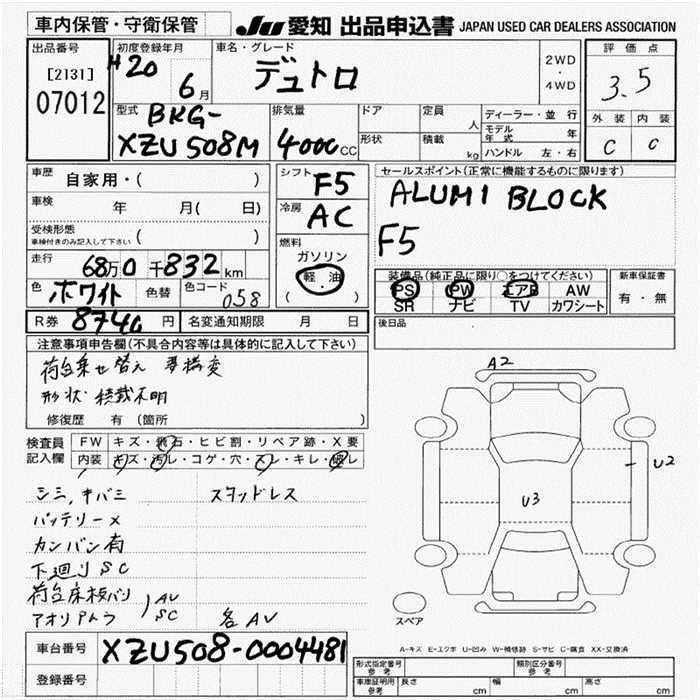 車内保管・守衛保管 JU 愛知 出品申込書 JAPAN USED CAR DEALERS ASSOCIATION
出品番号 [2131] 07012
初度登録年月 H20 6月
車名・グレード デュトロ
2WD・4WD
評価点 3.5
外装 C 内装 C
型式 BKG-XZU508M
排気量 4000cc
ドア 定員 人
形状 積載 kg
ディーラー・並行
モデル年式 年
ハンドル 左・右
車歴 自家用・( )
シフト F5
セールスポイント(正常に機能するものに限ります)
ALUMI BLOCK
F5
車検 年 月( 日)
冷房 AC
受検形態 車検付きのみ記入して下さい ( )
燃料 ガソリン 軽油 ( ・ )
走行 68万0千832km
装備品(純正品に限り○をつけてください)
PS PW エアB AW
SR ナビ TV カワシート
新車保証書 有・無
色 ホワイト 色替 色コード 058
R券 8740円 名変通知期限 月 日
後日品
注意事項申告欄(不具合内容等は具体的に記入して下さい)
荷台乗せ替え 要構変
形状 積載不明
修復歴 有 (箇所 )
検査員記入欄
FW キズ・飛石・ヒビ割・リペア跡・X要
内装 キズ・汚レ・コゲ・穴・スレ・キレ・破レ
シミ,キバミ スタッドレス
バッテリーX
カンバン有
下廻りSC
荷台床板バリ
アオリアトラ AU SC 各AU
A2
U2
U3
スペア
A-キズ E-エクボ U-凹み W-補修跡 S-サビ C-腐食 XX-交換済
車台番号 XZU508-0004481
登録番号
形式指定番号 参考 類別区分番号 参考
車庫証明用 参考 長さ cm 幅 cm 高さ cm